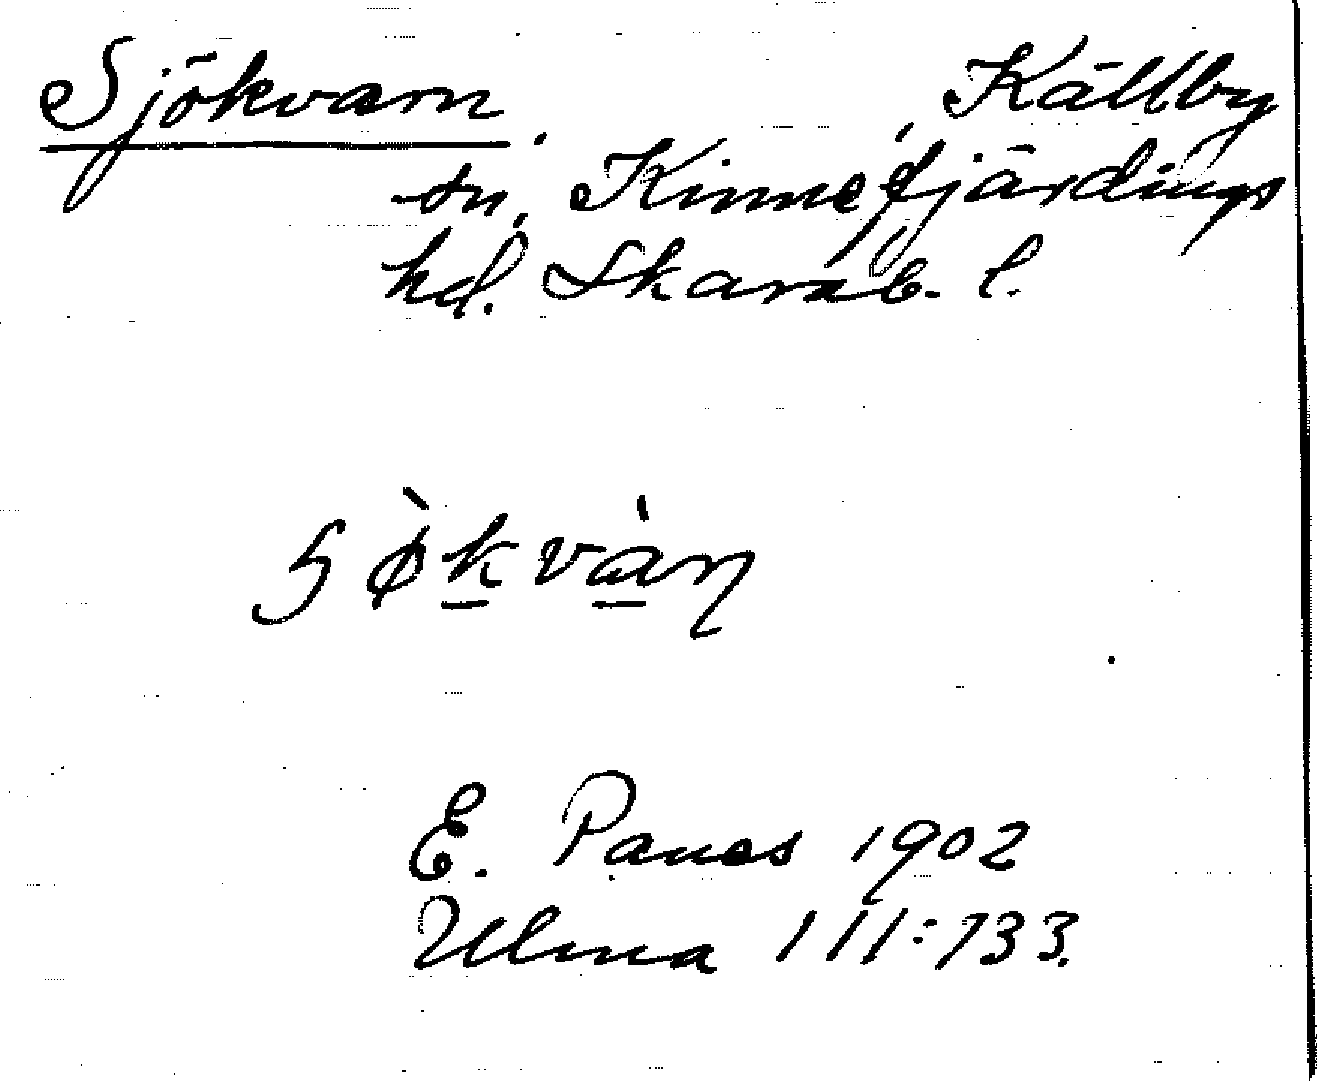 Sjökvarn, Källby
sn, Kinnefjärdings
hd. Skarab. l.
E. Panes 1902
Ulma 111:133.